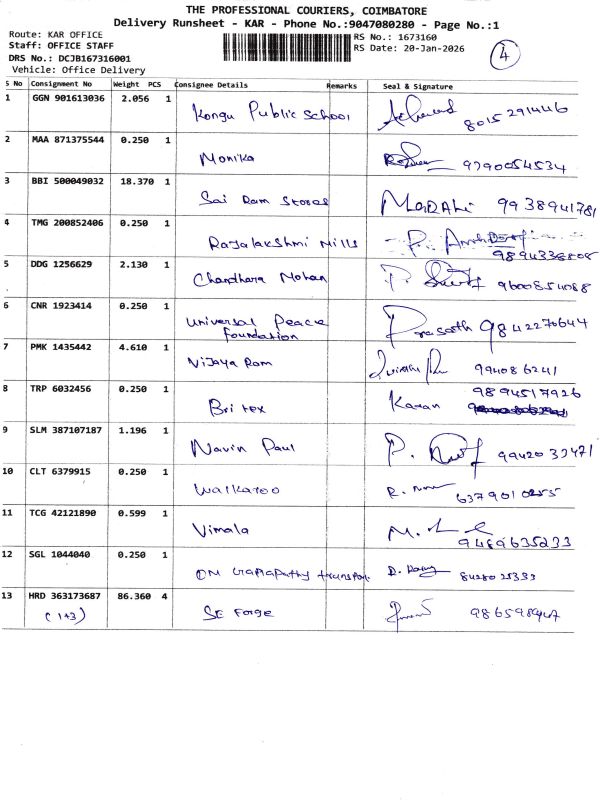 THE PROFESSIONAL COURIERS, COIMBATORE
Delivery Runsheet - KAR - Phone No.:9047080280 - Page No.:1
Route: KAR OFFICE
Staff: OFFICE STAFF
DRS No.: DCJB167316001
Vehicle: Office Delivery
RS No.: 1673160
RS Date: 20-Jan-2026
4
S No Consignment No Weight PCS Consignee Details Remarks Seal & Signature
1 GGN 901613036 2.056 1 Kongu Public School 8015291446
2 MAA 871375544 0.250 1 Monika 9790054534
3 BBI 500049032 18.370 1 Sai Ram Stores 9938941781
4 TMG 200852406 0.250 1 Rajalakshmi Mills
5 DDG 1256629 2.130 1 Chandhara Mohan 9600854088
6 CNR 1923414 0.250 1 Universal Peace Foundation Prasath 9842270644
7 PMK 1435442 4.610 1 Vijaya Ram 994086241
8 TRP 6032456 0.250 1 Britex Karan 9894517926
9 SLM 387107187 1.196 1 Navin Paul
10 CLT 6379915 0.250 1 Walkaroo
11 TCG 42121890 0.599 1 Vimala 9489635233
12 SGL 1044040 0.250 1 transport
13 HRD 363173687 86.360 4 SE Forge
(1+3)